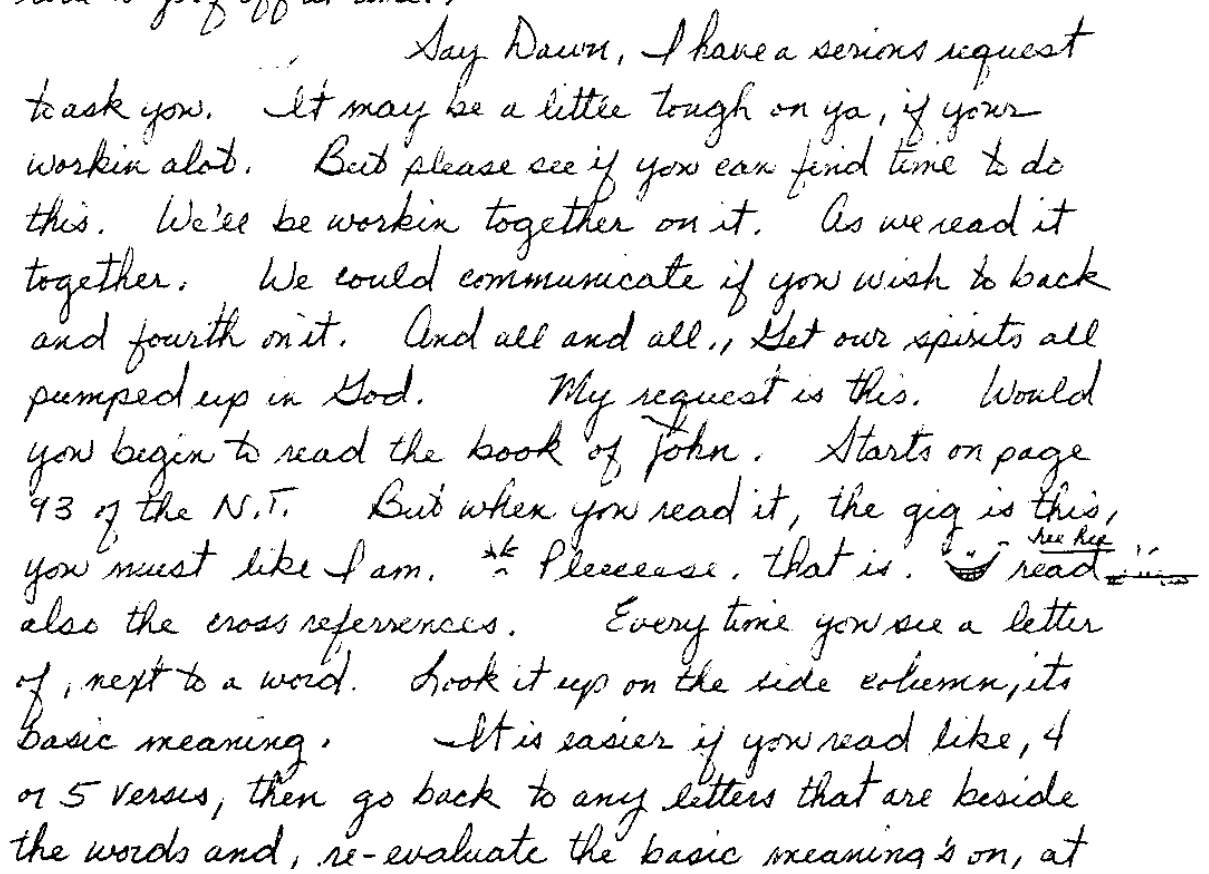 Say Dawn, I have a serious request
to ask you. It may be a little tough on ya, if your
workin alot. But please see if you can find time to do
this. We'll be workin together on it. As we read it
together. We could communicate if you wish to back
and fourth on it. And all and all., Get our spirits all
pumped up in God. My request is this. Would
you begin to read the book of John. Starts on page
93 of the N.T. But when you read it, the gig is this,
hee hee
you must like I am. Pleeeease. that is. read
also the cross referrences. Every time you see a letter
of, next to a word. Look it up on the side column, its
basic meaning. It is easier if you read like, 4
or 5 verses, then go back to any letters that are beside
the words and, re-evaluate the basic meaning's on, at